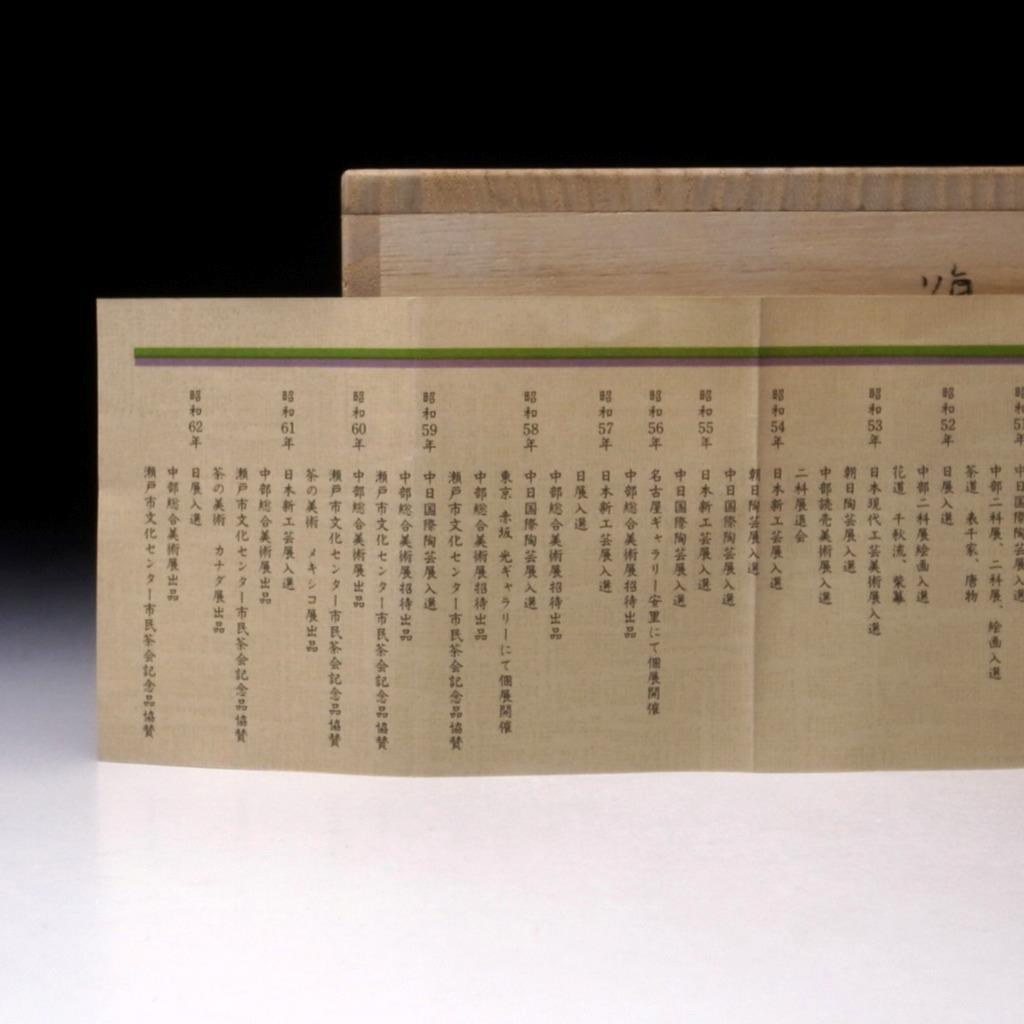 昭和51年 中日国際陶芸展入選
中部二科展、二科展、絵画入選
茶道 表千家、唐物
昭和52年 日展入選
中部二科展絵画入選
花道 千秋流、紫幕
昭和53年 日本現代工芸美術展入選
朝日陶芸展入選
中部読売美術展入選
二科展退会
昭和54年 日本新工芸展入選
朝日陶芸展入選
中日国際陶芸展入選
昭和55年 日本新工芸展入選
中日国際陶芸展入選
昭和56年 名古屋ギャラリー安里にて個展開催
中部総合美術展招待出品
昭和57年 日本新工芸展入選
日展入選
中部総合美術展招待出品
昭和58年 中日国際陶芸展入選
東京 赤坂 光ギャラリーにて個展開催
中部総合美術展招待出品
瀬戸市文化センター市民茶会記念品協賛
昭和59年 中日国際陶芸展入選
中部総合美術展招待出品
瀬戸市文化センター市民茶会記念品協賛
昭和60年 中部総合美術展出品
瀬戸市文化センター市民茶会記念品協賛
茶の美術 メキシコ展出品
昭和61年 日本新工芸展入選
中部総合美術展出品
瀬戸市文化センター市民茶会記念品協賛
茶の美術 カナダ展出品
昭和62年 日展入選
中部総合美術展出品
瀬戸市文化センター市民茶会記念品協賛